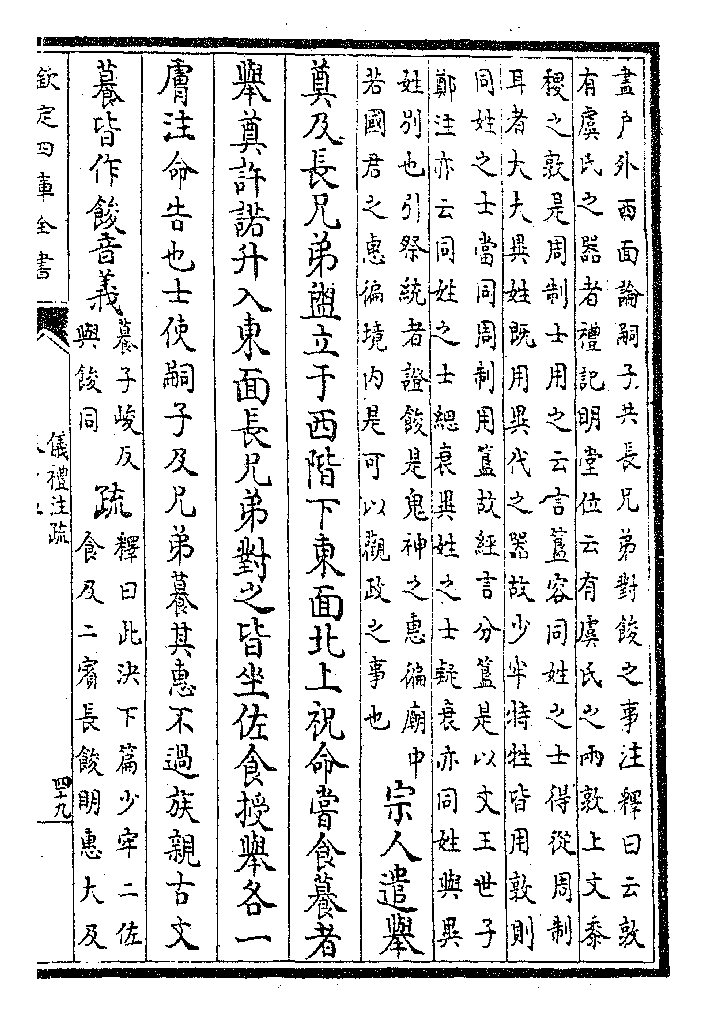 盡戶外西面論嗣子共長兄弟對餕之事注釋曰云敦
有虞氏之器者禮記明堂位云有虞氏之兩敦上文黍
稷之敦是周制士用之云言簋容同姓之士得從周制
耳者大夫異姓既用異代之器故少牢特牲皆用敦則
同姓之士當同周制用簋故經言分簋是以文王世子
鄭注亦云同姓之士緦衰異姓之士疑衰亦同姓與異
姓別也引祭統者證餕是鬼神之惠徧廟中
若國君之惠徧境内是可以觀政之事也
宗人遣舉
奠及長兄弟盥立于西階下東面北上祝命嘗食䭕者
舉奠許諾升入東面長兄弟對之皆坐佐食授舉各一
膚注命告也士使嗣子及兄弟䭕其惠不過族親古文
䭕皆作餕音義
䭕子峻反
與餕同
疏
釋曰此決下篇少牢二佐
食及二賓長餕明惠大及
欽定四庫全書
儀禮注疏
四十九